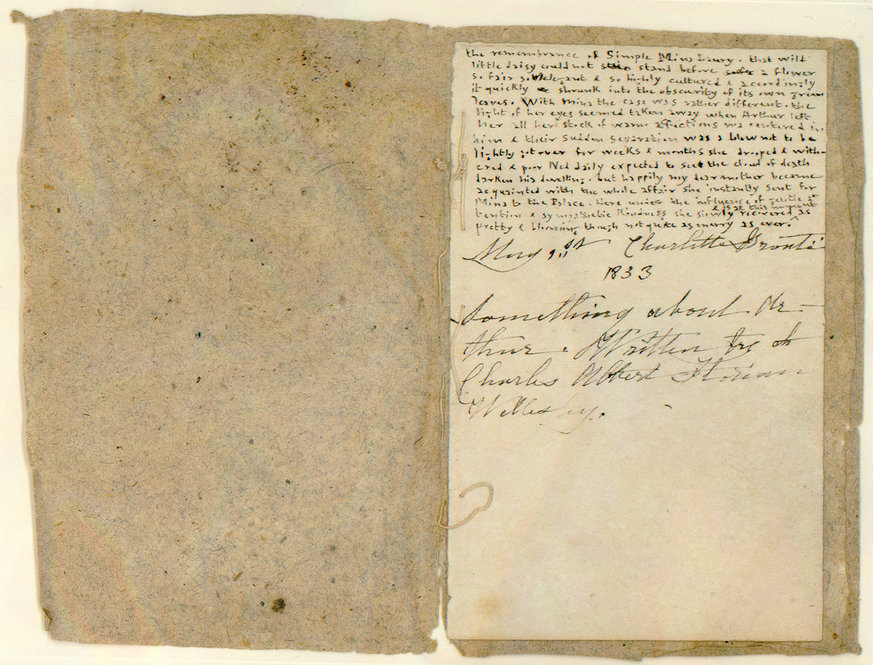 the remembrance of Simple Mina Laury. that wild
little daisy could not stand before a flower
so fair so elegant & so highly cultured & accordingly
it quickly shrunk into the obscurity of its own green
leaves. With Mina the case was rather different. the
light of her eyes seemed taken away when Arthur left
her all her stock of warm affections was centered in
him & their sudden separation was a blow not to be
lightly got over for weeks & months she drooped & with-
ered & poor Ned daily expected to see the cloud of death
darken his dwelling. but happily my dear mother became
acquainted with the whole affair she instantly sent for
Mina to the Palace. here under the influence of gentle at-
tention & sympathetic kindness she slowly recovered & is at this moment as
pretty & blooming though not quite as merry as ever.
May 1st Charlotte Brontë
1833
Something about Ar-
thur. Written by
Charles Albert Florian
Wellesley.